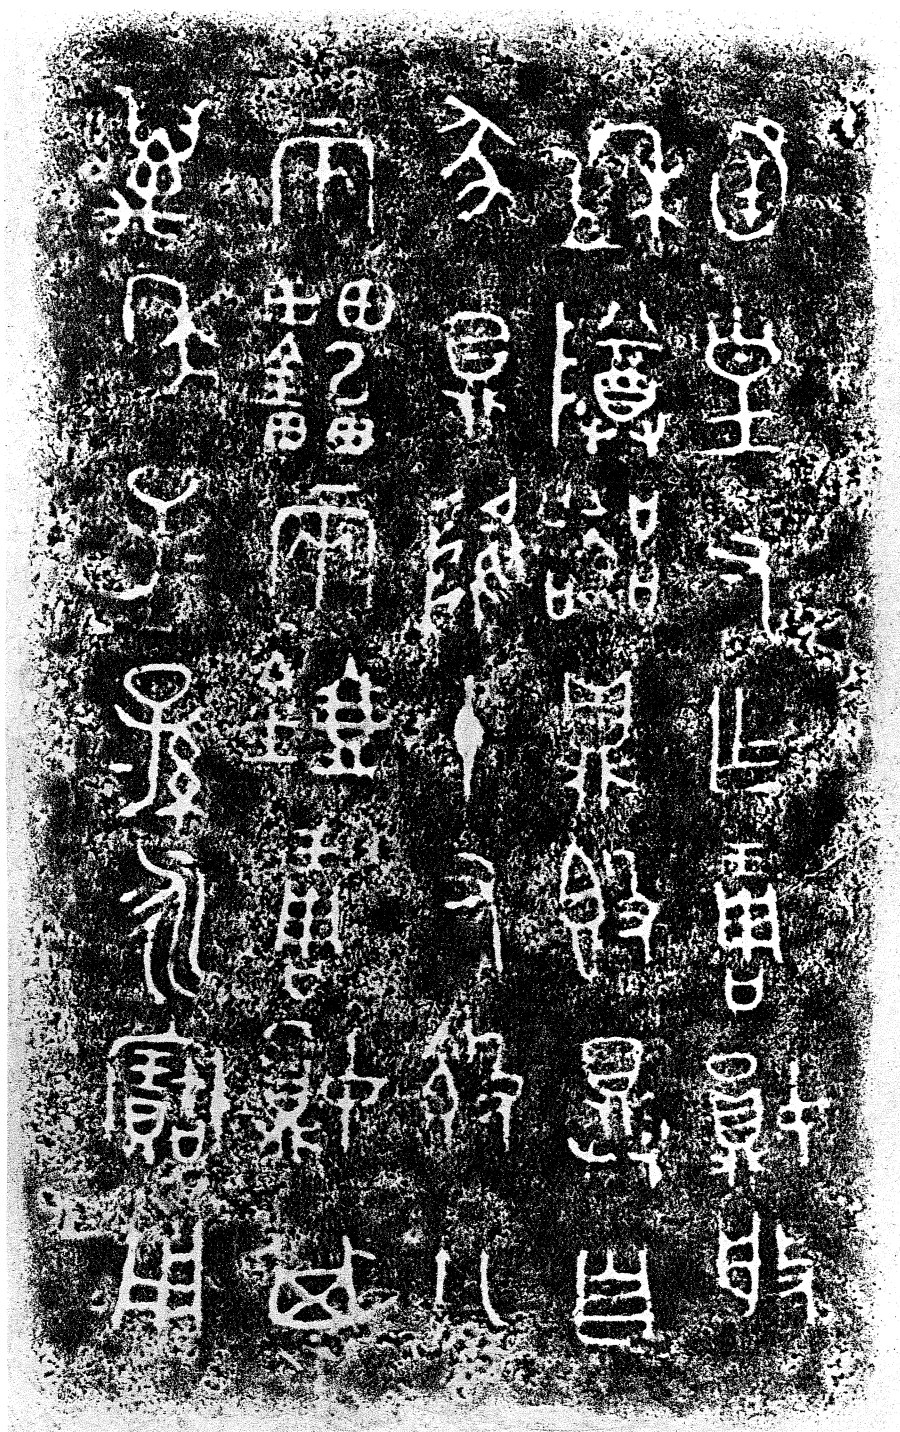 函皇父乍琱娟般
盉尊器鼎𣪘具自
豕鼎降十又𣪘八
兩罍兩壺琱娟其
萬年子孫永寶用